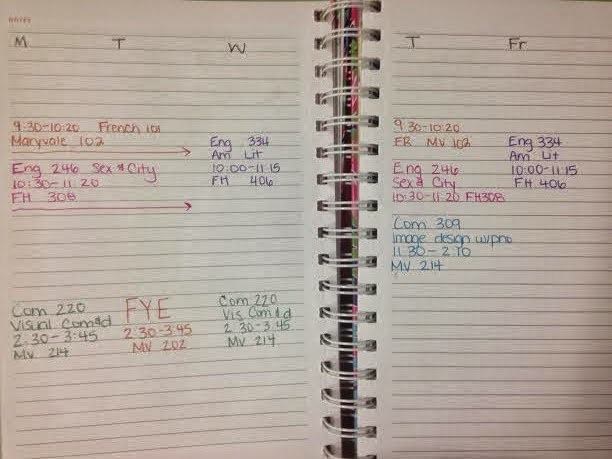 NOTES
M T W
9:30-10:20 French 101
Maryvale 102
Eng 246 Sex & City
10:30-11:20
FH 308
Eng 334
Am Lit
10:00-11:15
FH 406
Com 220
Visual Com&d
2:30-3:45
MV 214
FYE
2:30-3:45
MV 202
Com 220
Vis Com&d
2:30-3:45
MV 214
T Fr
9:30-10:20
FR MV 102
Eng 246
Sex & City
10:30-11:20 FH308
Com 309
Image design w/pho
11:30-2:10
MV 214
Eng 334
Am Lit
10:00-11:15
FH 406